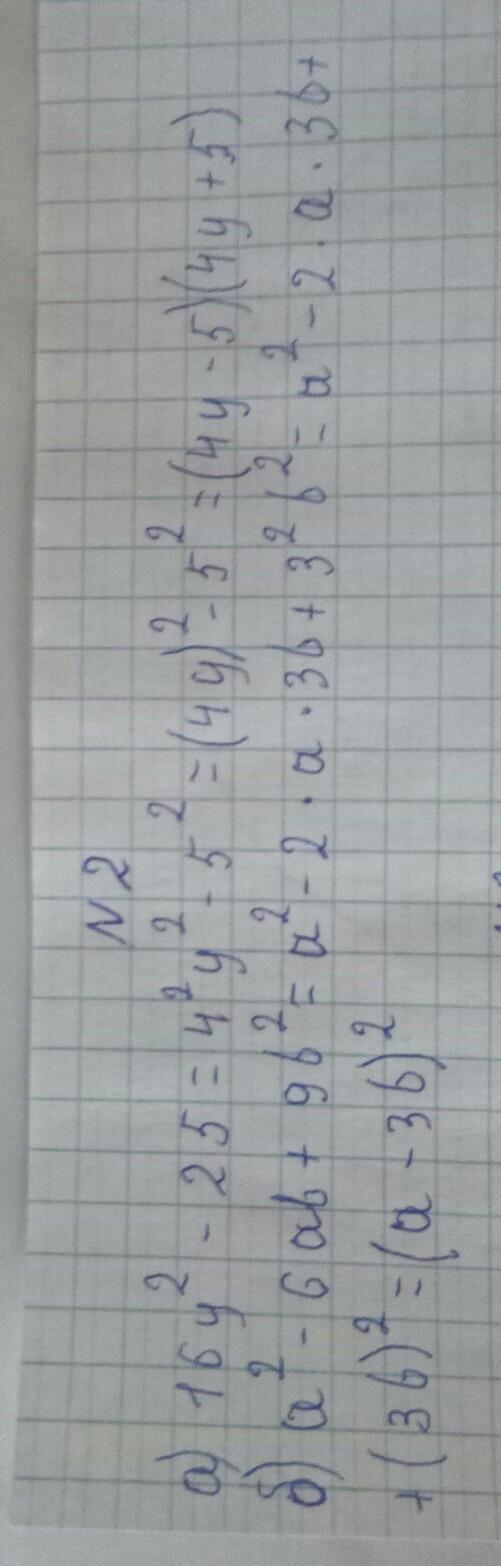 N2
а) 16y² - 25 = 4²y² - 5² = (4y)² - 5² = (4y - 5)(4y + 5)
б) a² - 6ab + 9b² = a² - 2 · a · 3b + 3²b² = a² - 2 · a · 3b +
+ (3b)² = (a - 3b)²